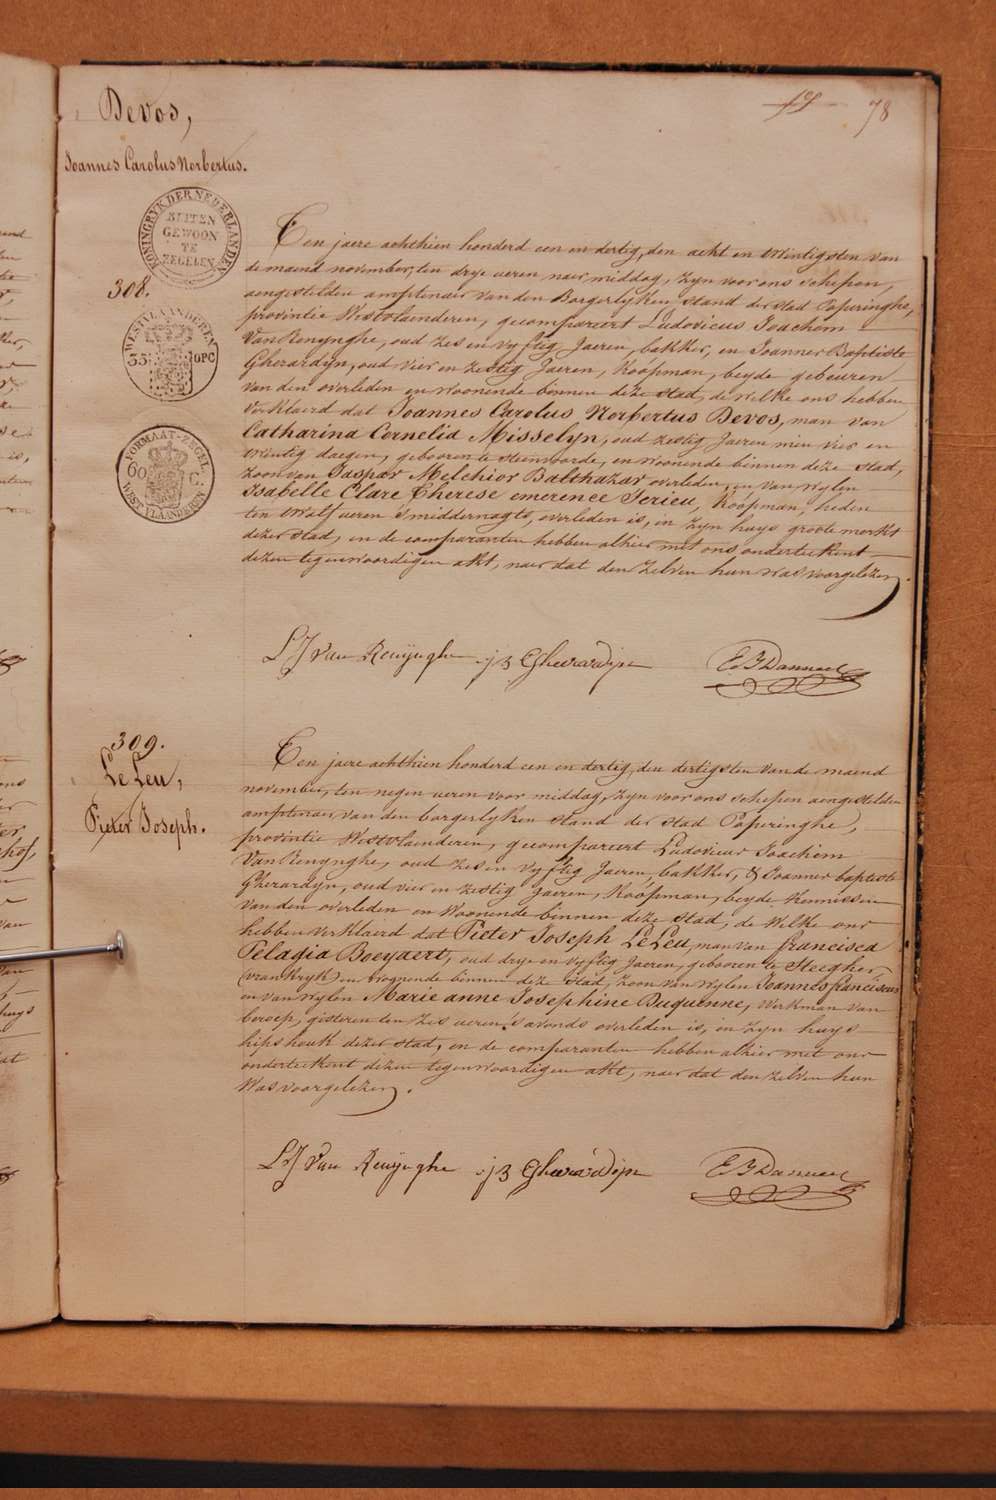 78
Devos,
Joannes Carolus Norbertus.
KONINGRYK DER NEDERLANDEN
BUITEN
GEWOON
TE
ZEGELEN
308.
WESTVLAANDEREN
35 OPC
NORMAAT-ZEGEL
60 C.
WESTVLAANDEREN
Een jaere achthien honderd een en dertig, den acht en twintigsten van
de maend november, ten drye ueren naer middag, zyn voor ons schepen,
aengestelden amptenaer van den Borgerlyken stand der stad Poperinghe,
provintie Westvlaenderen, gecompareert Ludovicus Joachim
Van Renynghe, oud zes en vyftig Jaeren, bakker, en Joannes Baptiste
Gherardyn, oud vier en zestig Jaeren, Koópman, beyde gebeuren
van den overleden en woonende binnen deze stad, de welke ons hebben
verklaerd dat Joannes Carolus Norbertus Devos, man van
Catharina Cornelia Misselyn, oud zestig Jaeren min vier en
twintig daegen, gebooren te steenvoorde, en woonende binnen deze stad,
zoon van Jaspar Melchior Balthazar overleden, en van wylen
Isabelle Clare Therese emerence Terieu, Koópman, heden
ten twalf ueren s'middernagts, overleden is, in zyn huys groote merkt
dezer stad, en de comparanten hebben alhier met ons onderteekent
dezen tegenwoordigen akt, naer dat den zelven hun was voorgelezen.
LJ van Renynghe j B Gherardyn
309.
Le Leu,
Pieter Joseph.
Een jaere achthien honderd een en dertig, den dertigsten van de maend
november, ten negen ueren voor middag, zyn voor ons schepen aengestelden
amptenaer van den borgerlyken stand der stad Poperinghe,
provintie Westvlaenderen, gecompareert Ludovicus Joachim
Van Renynghe, oud zes en vyftig Jaeren, bakker, & Joannes baptiste
Gherardyn, oud vier en zestig Jaeren, Koópman, beyde Kennissen
van den overleden en woonende binnen deze stad, de welke ons
hebben verklaerd dat Pieter Joseph Le Leu, man van francisca
Pelagia Boeyaert, oud drye en vyftig Jaeren, gebooren te Steegher,
(vrankryk) en woonende binnen deze stad, zoon van wylen Joannes franciscus
en van wylen Marie anne Josephine Duquenne, Werkman van
beroep, gisteren ten zes ueren s'avonds overleden is, in zyn huys
hipshouk dezer stad, en de comparanten hebben alhier met ons
onderteekent dezen tegenwoordigen akt, naer dat den zelven hun
was voorgelezen.
LJ van Renynghe j B Gherardyn